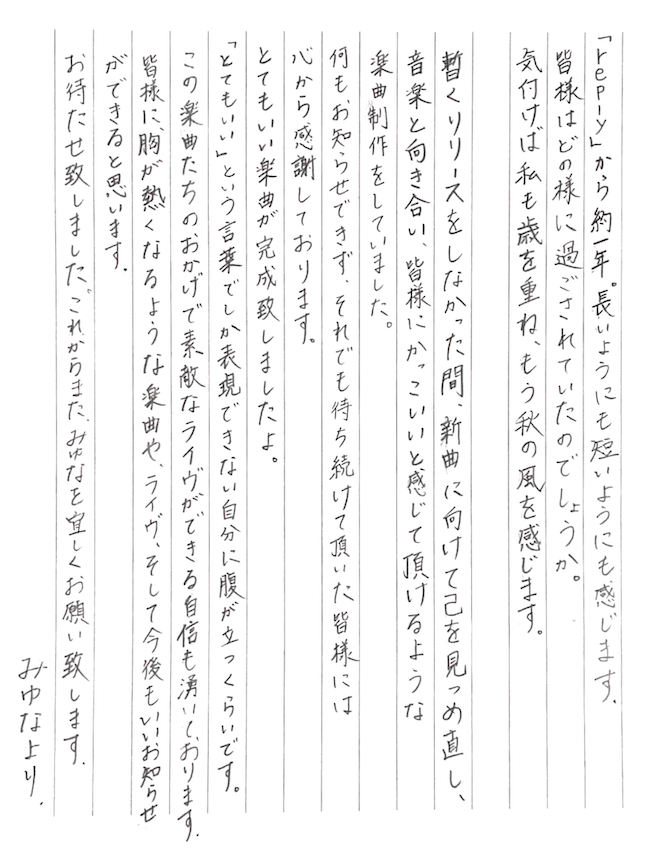 「reply」から約一年。長いようにも短いようにも感じます．
皆様はどの様に過ごされていたのでしょうか。
気付けば私も歳を重ね、もう秋の風を感じます。
暫くリリースをしなかった間、新曲に向けて己を見つめ直し、
音楽と向き合い、皆様にかっこいいと感じて頂けるような
楽曲制作をしていました。
何もお知らせできず、それでも待ち続けて頂いた皆様には
心から感謝しております。
とてもいい楽曲が完成致しましたよ。
「とてもいい」という言葉でしか表現できない自分に腹が立つくらいです。
この楽曲たちのおかげで素敵なライヴができる自信も湧いております．
皆様に、胸が熱くなるような楽曲や、ライヴ、そして今後もいいお知らせ
ができると思います．
お待たせ致しました。これからまた、みゆなを宜しくお願い致します．
みゆなより．